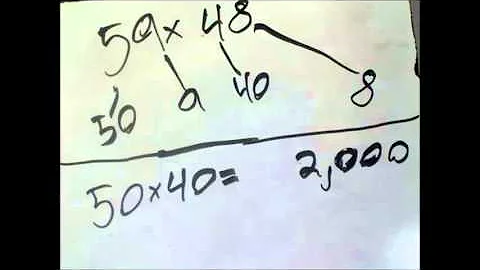 59 x 48
50 9 40 8
50 x 40 = 2,000